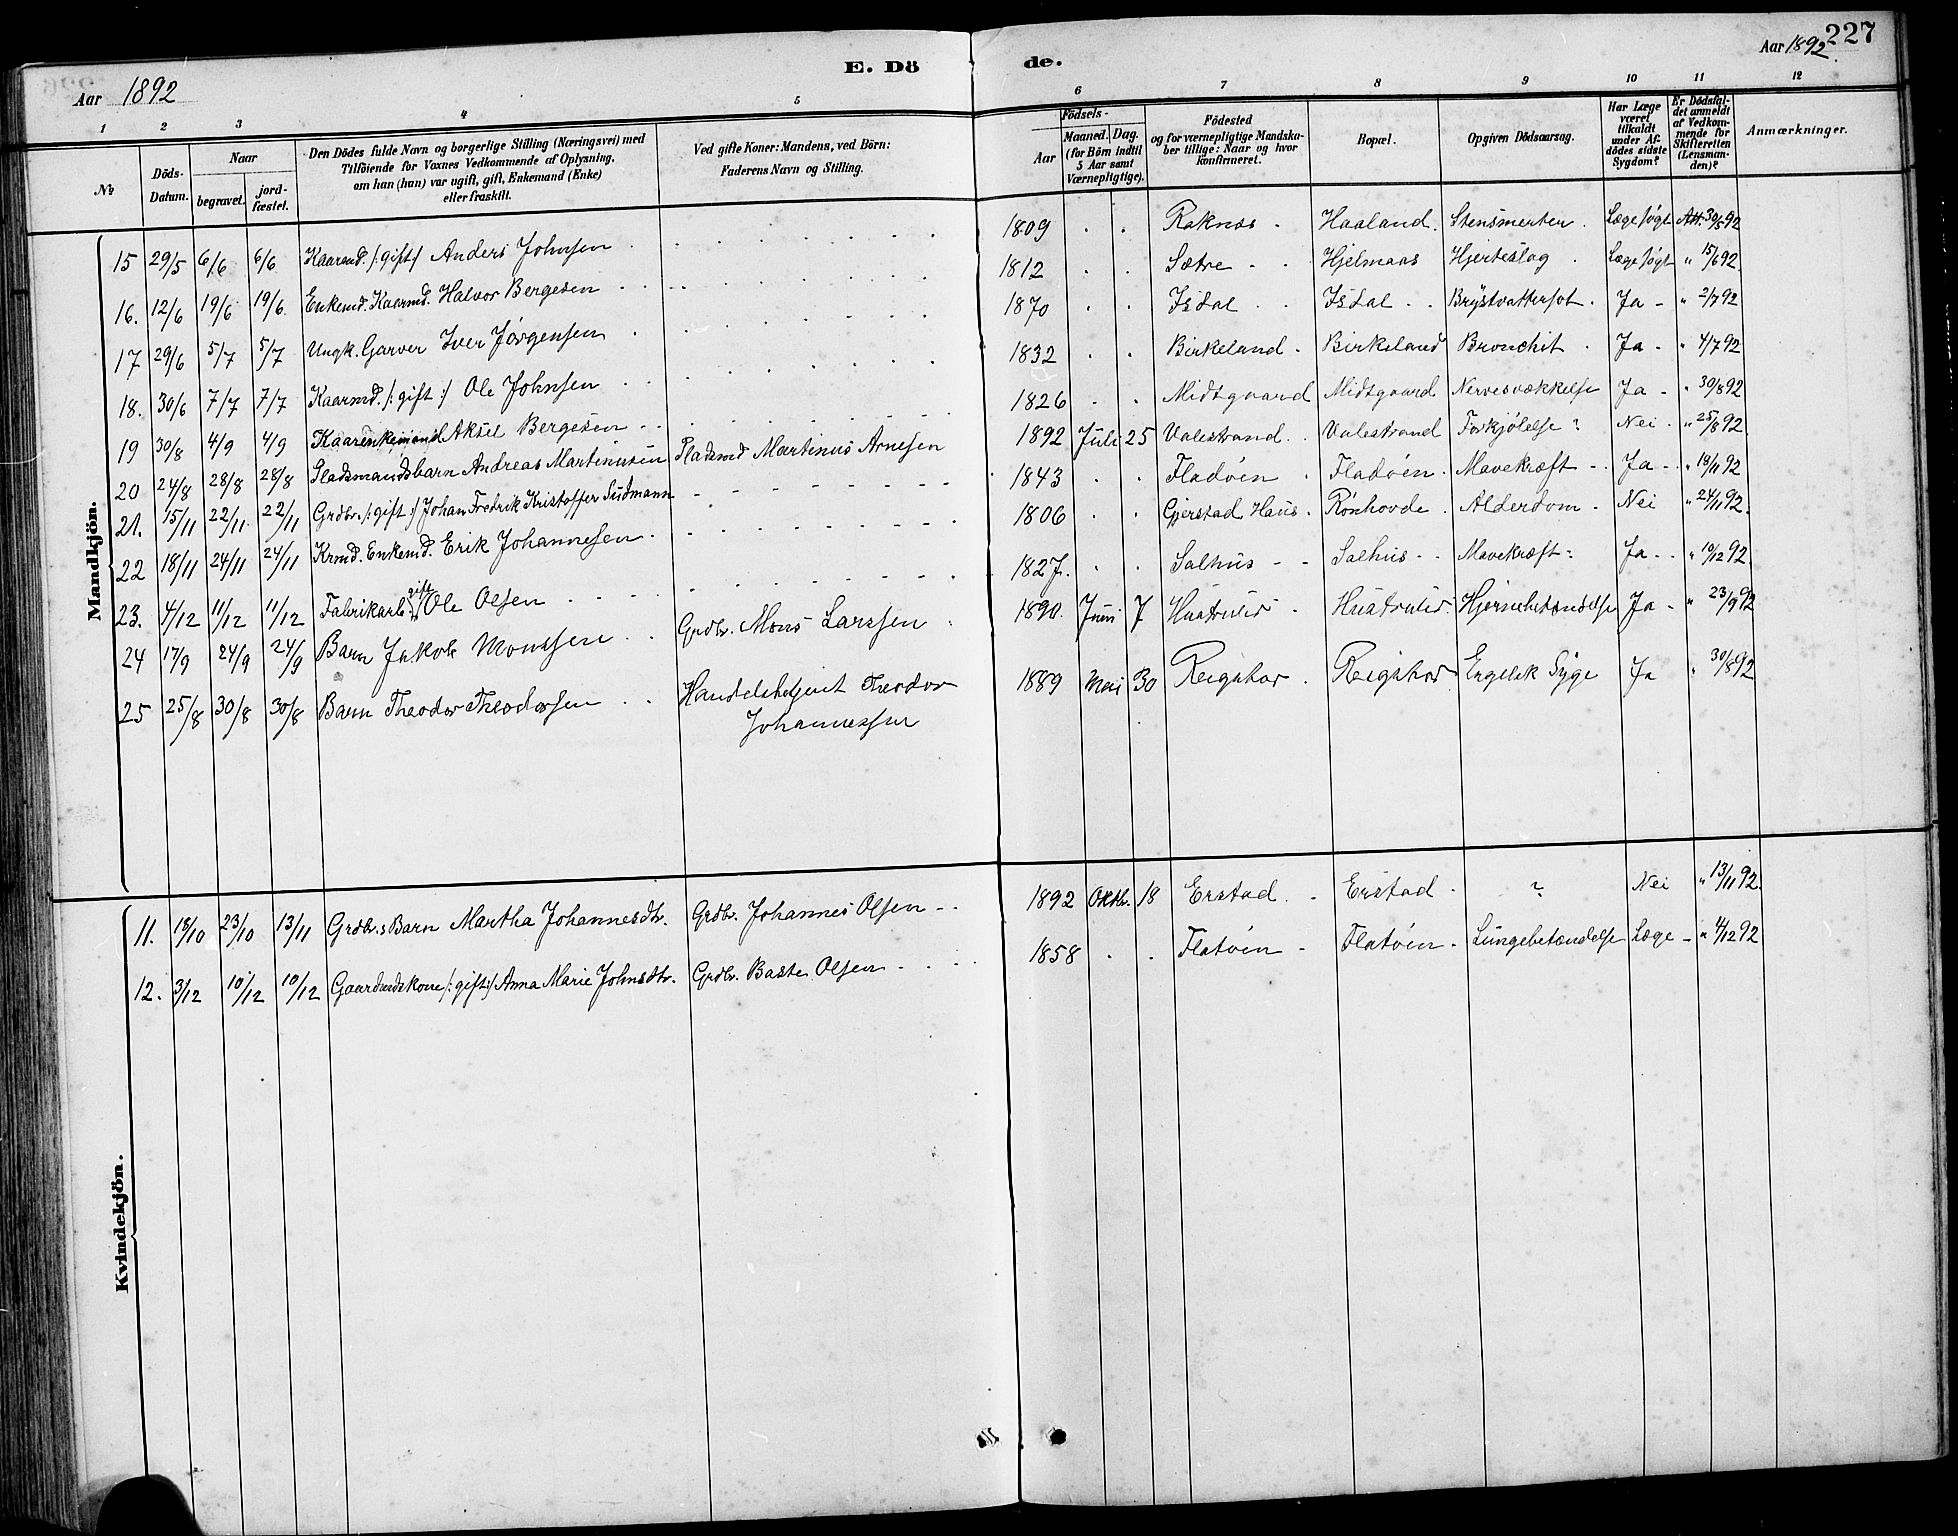 Aar 1892
E. Dö
de.
Aar 1892.
227
1 2 3 4 5 6 7 8 9 10 11 12
№
Döds-Datum.
Naar
begravet.
jord-fæstet.
Den Dödes fulde Navn og borgerlige Stilling (Næringsvei) med
Tilföiende for Voxnes Vedkommende af Oplysning,
om han (hun) var ugift, gift, Enkemand (Enke)
eller fraskilt.
Ved gifte Koner: Mandens, ved Börn:
Faderens Navn og Stilling.
Födsels-
Aar
Maaned. Dag.
(for Börn indtil
5 Aar samt
Værnepligtige).
Födested
og for værnepligtige Mandska-
ber tillige: Naar og hvor
konfirmeret.
Bopæl.
Opgiven Dödsaarsag.
Har Læge
været
tilkaldt
under Af-
dödes sidste
Sygdom?
Er Dödsfal-
det anmeldt
af Vedkom-
mende for
Skifteretten
(Lensman-
den)?
Anmærkninger.
Mandkjön.
15 29/5 6/6 6/6 Kaarmd. /: gift :/ Anders Johnsen 1809 Raknes Haaland. Stensmerter. Læge søgt Att. 30/5 92
16. 12/6 19/6 19/6 Enkemd. Kaarmd. Halvor Bergesen 1812 Sætre Hjelmaas Hjerteslag Læge søgt " 15/6 92.
17 29/6 5/7 5/7 Ungk. Garver Iver Jørgensen 1870 Isdal Isdal Brystvattersot. Ja " 2/7 92
18. 30/6 7/7 7/7 Kaarmd. /: gift :/ Ole Johnsen 1832 Birkeland Birkeland Bronchit Ja " 4/7 92
19 30/8 4/9 4/9 Kaarenkemand Aksel Bergesen 1826 Midtgaard Midtgaard Nervesvækkelse Ja " 30/8 92
20 24/8 28/8 28/8 Pladsmandsbarn Andreas Martinusen Pladsmd Martinus Arnesen 1892 Juli 25 Valestrand Valestrand Forkjølelse ? Nei " 25/8 92
21. 15/11 22/11 22/11 Grdbr. /: gift :/ Johan Fredrik Kristoffer Sudmann 1843 Fladøen Fladøen Mavekræft Ja " 19/11 92
22 18/11 24/11 24/11 Krmd. Enkemd. Erik Johannesen 1806 Gjerstad Haus Rønhovde Alderdom Nei " 24/11 92.
23. 4/12 11/12 11/12 Fabrikarb. gift Ole Olsen 1827. Salhus Salhus Mavekræft Ja " 10/12 92.
24 17/9 24/9 24/9 Barn Jakob Monssen Grdbr. Mons Larssen 1890. Juni 7 Hjernebetændelse Ja " 23/9 92
25 25/8 30/8 30/8 Barn Theodor Theodorsen Handelsbetjent Theodor 1889 Mai 30 Reigstad Reigstad Engelsk Syge Ja " 30/8 92
Johannessen
Kvindekjön.
11. 18/10 23/10 13/11 Grdbr.s Barn Martha Johannesdtr. Grdbr. Johannes Olsen 1892 Oktbr. 18 Erstad Erstad ? Nei " 13/11 92.
12. 3/12 10/12 10/12 Gaardmdskone /: gift :/ Anna Marie Johnsdtr. Grdbr. Baste Olsen 1858 Flatøen Flatøen Lungebetændelse Læge " 4/12 92